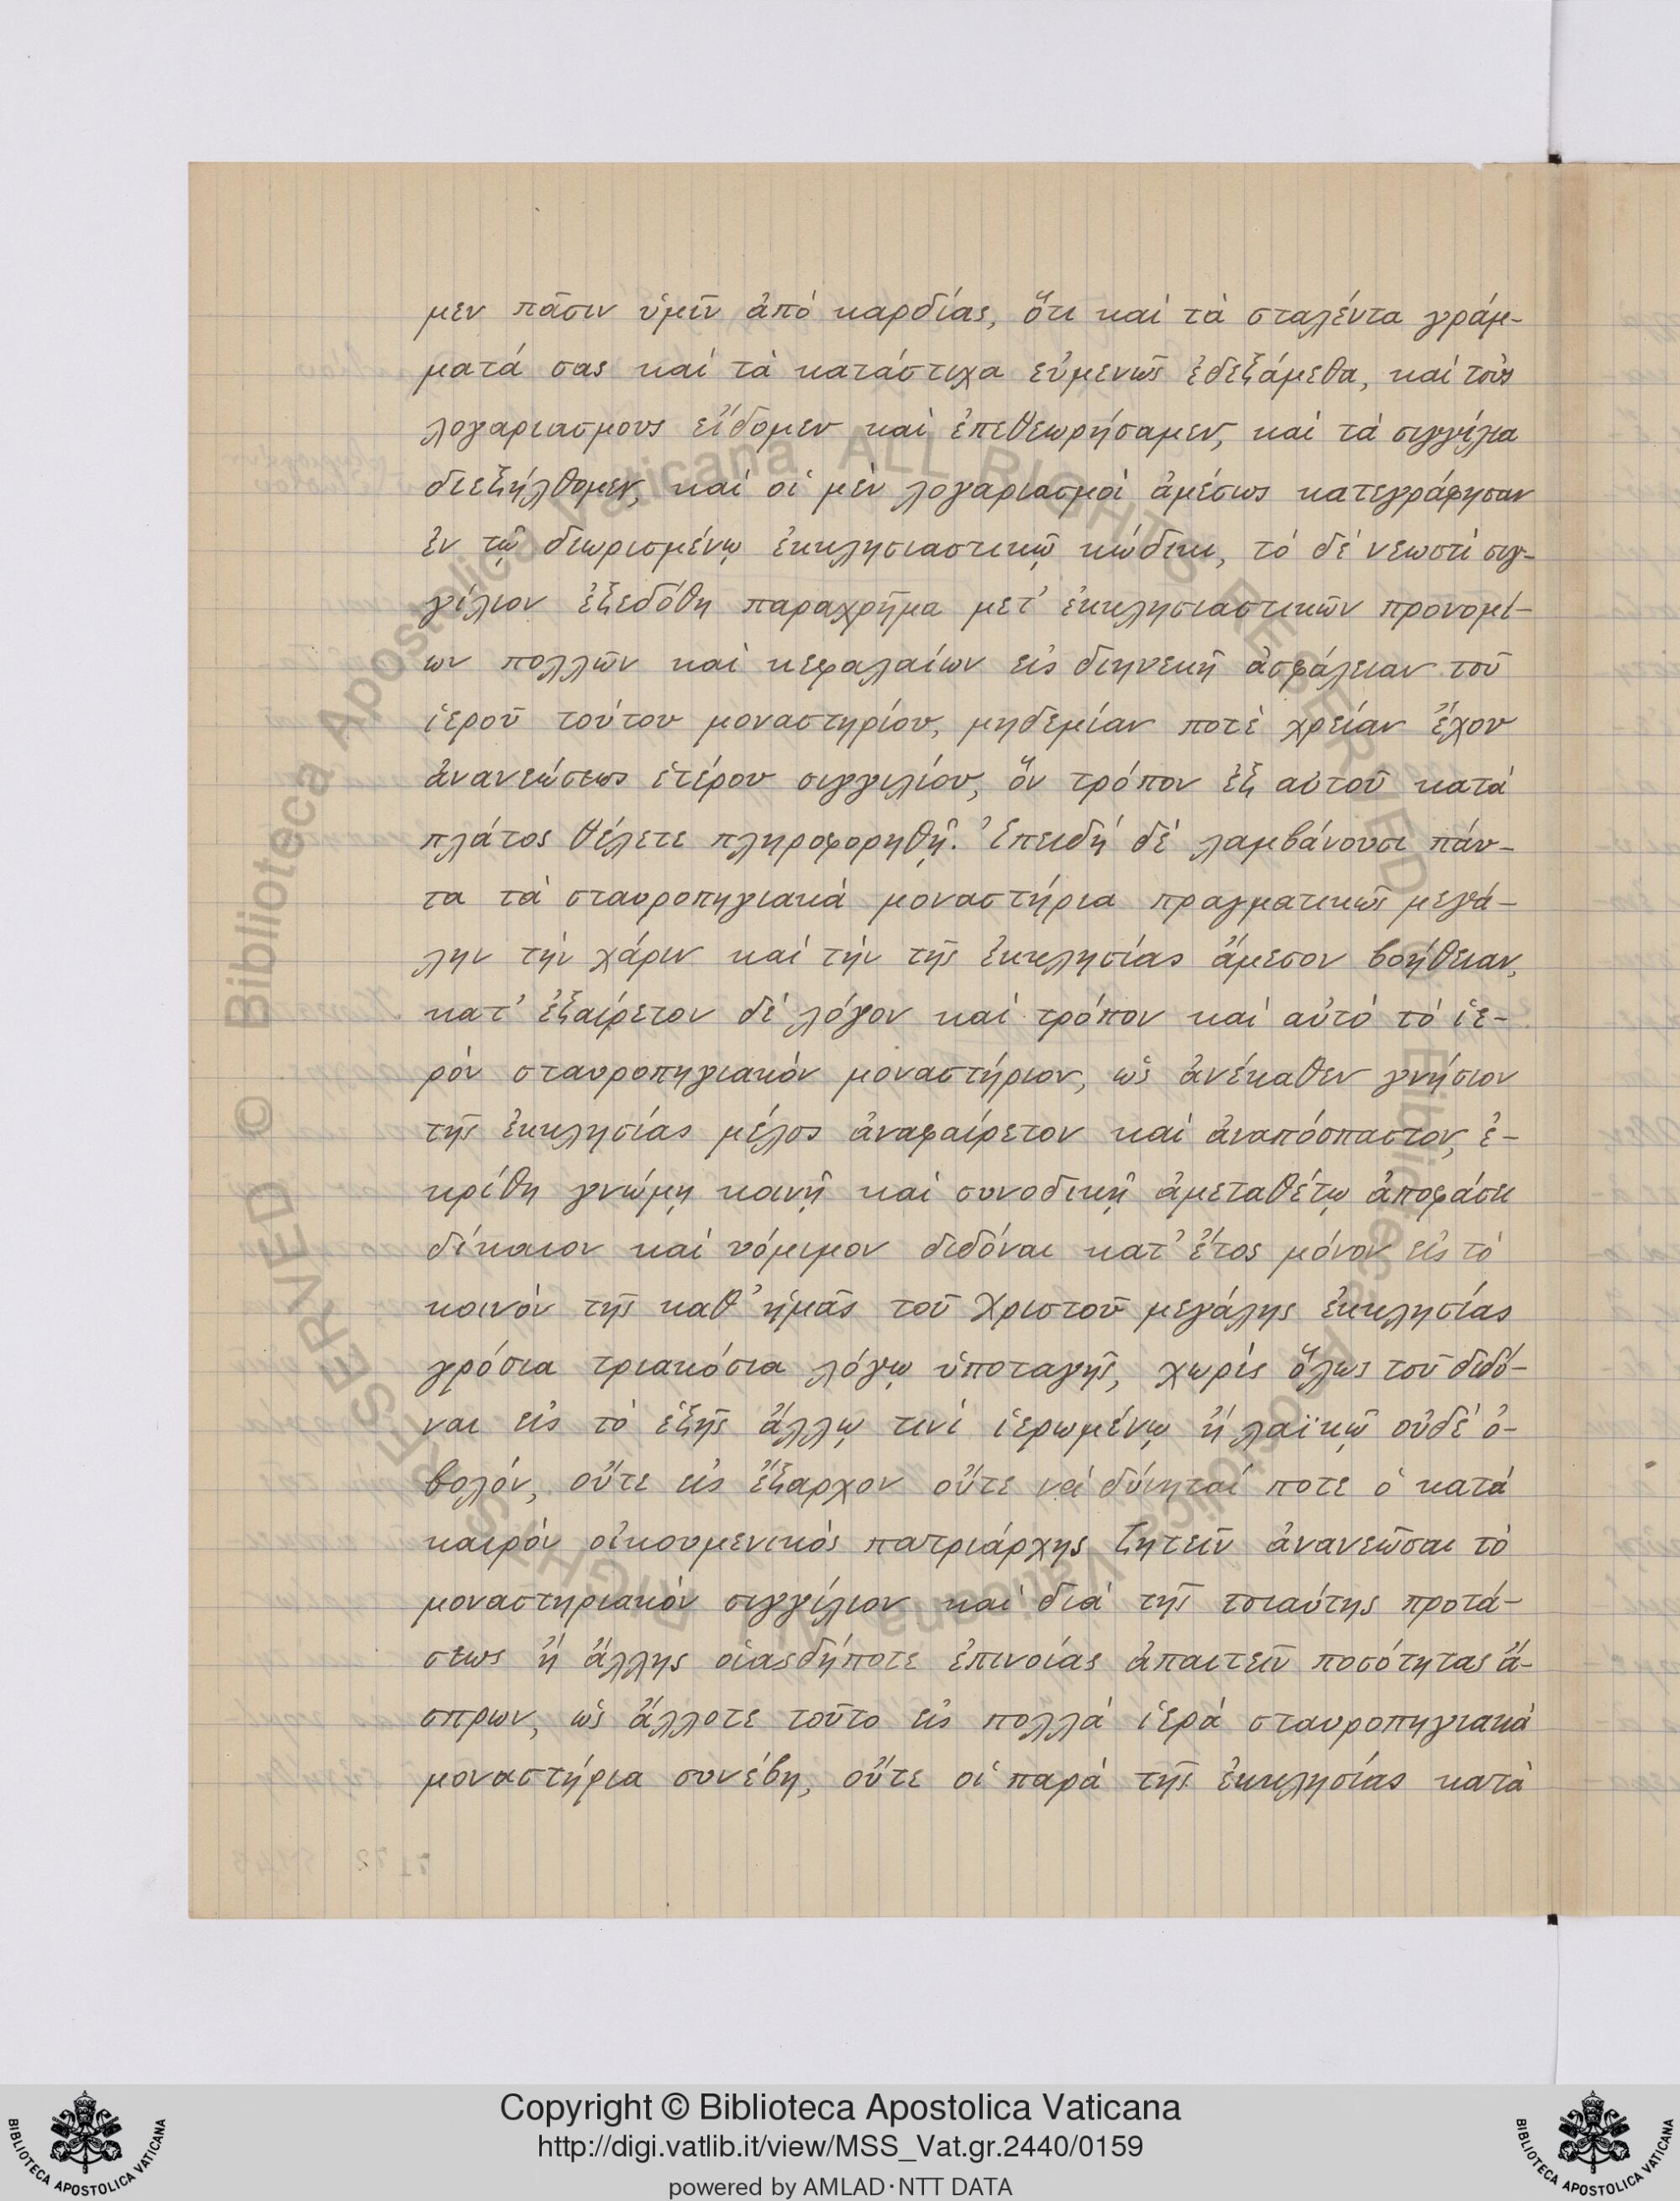 μεν πᾶσιν ὑμῖν ἀπὸ καρδίας, ὅτι καὶ τὰ σταλέντα γράμ-
ματά σας καὶ τὰ κατάστιχα εὐμενῶς ἐδεξάμεθα, καὶ τοὺς
λογαριασμους εἴδομεν καὶ ἐπεθεωρήσαμεν, καὶ τὰ σιγγίλια
διεξήλθομεν, καὶ οἱ μὲν λογαριασμοὶ ἀμέσως κατεγράφησαν
ἐν τῷ διωρισμένῳ ἐκκλησιαστικῷ κώδικι, τὸ δὲ νεωστὶ σιγ-
γίλιον ἐξεδόθη παραχρῆμα μετ' ἐκκλησιαστικῶν προνομί-
ων πολλῶν καὶ κεφαλαίων εἰς διηνεκῆ ἀσφάλειαν τοῦ
ἱεροῦ τούτου μοναστηρίου, μηδεμίαν ποτὲ χρείαν ἔχον
ἀνανεώσεως ἑτέρου σιγγιλίου, ὃν τρόπον ἐξ αὐτοῦ κατὰ
πλάτος θέλετε πληροφορηθῆ. Ἐπειδὴ δὲ λαμβάνουσι πάν-
τα τὰ σταυροπηγιακὰ μοναστήρια πραγματικῶς μεγά-
λην τὴν χάριν καὶ τὴν τῆς ἐκκλησίας ἄμεσον βοήθειαν,
κατ' ἐξαίρετον δὲ λόγον καὶ τρόπον καὶ αὐτὸ τὸ ἱε-
ρὸν σταυροπηγιακὸν μοναστήριον, ὡς ἀνέκαθεν γνήσιον
τῆς ἐκκλησίας μέλος ἀναφαίρετον καὶ ἀναπόσπαστον, ἐ-
κρίθη γνώμῃ κοινῇ καὶ συνοδικῇ ἀμεταθέτῳ ἀποφάσει
δίκαιον καὶ νόμιμον διδόναι κατ' ἔτος μόνον εἰς τὸ
κοινὸν τῆς καθ' ἡμᾶς τοῦ Χριστοῦ μεγάλης ἐκκλησίας
γρόσια τριακόσια λόγῳ ὑποταγῆς, χωρὶς ὅλως τοῦ διδό-
ναι εἰς τὸ ἑξῆς ἄλλῳ τινὶ ἱερωμένῳ ἢ λαϊκῷ οὐδὲ ὀ-
βολόν, οὔτε εἰς ἔξαρχον οὔτε νὰ δύνηταί ποτε ὁ κατὰ
καιρὸν οἰκουμενικὸς πατριάρχης ζητεῖν ἀνανεῶσαι τὸ
μοναστηριακὸν σιγγίλιον καὶ διὰ τῆς τοιαύτης προτά-
σεως ἢ ἄλλης οἱασδήποτε ἐπινοίας ἀπαιτεῖν ποσότητας ἄ-
σπρων, ὡς ἄλλοτε τοῦτο εἰς πολλὰ ἱερὰ σταυροπηγιακὰ
μοναστήρια συνέβη, οὔτε οἱ παρὰ τῆς ἐκκλησίας κατὰ
© Biblioteca Apostolica Vaticana ALL RIGHTS RESERVED
© Biblioteca Apostolica Vaticana ALL RIGHTS RESERVED
Copyright © Biblioteca Apostolica Vaticana
http://digi.vatlib.it/view/MSS_Vat.gr.2440/0159
powered by AMLAD·NTT DATA
BIBLIOTECA APOSTOLICA VATICANA
BIBLIOTECA APOSTOLICA VATICANA